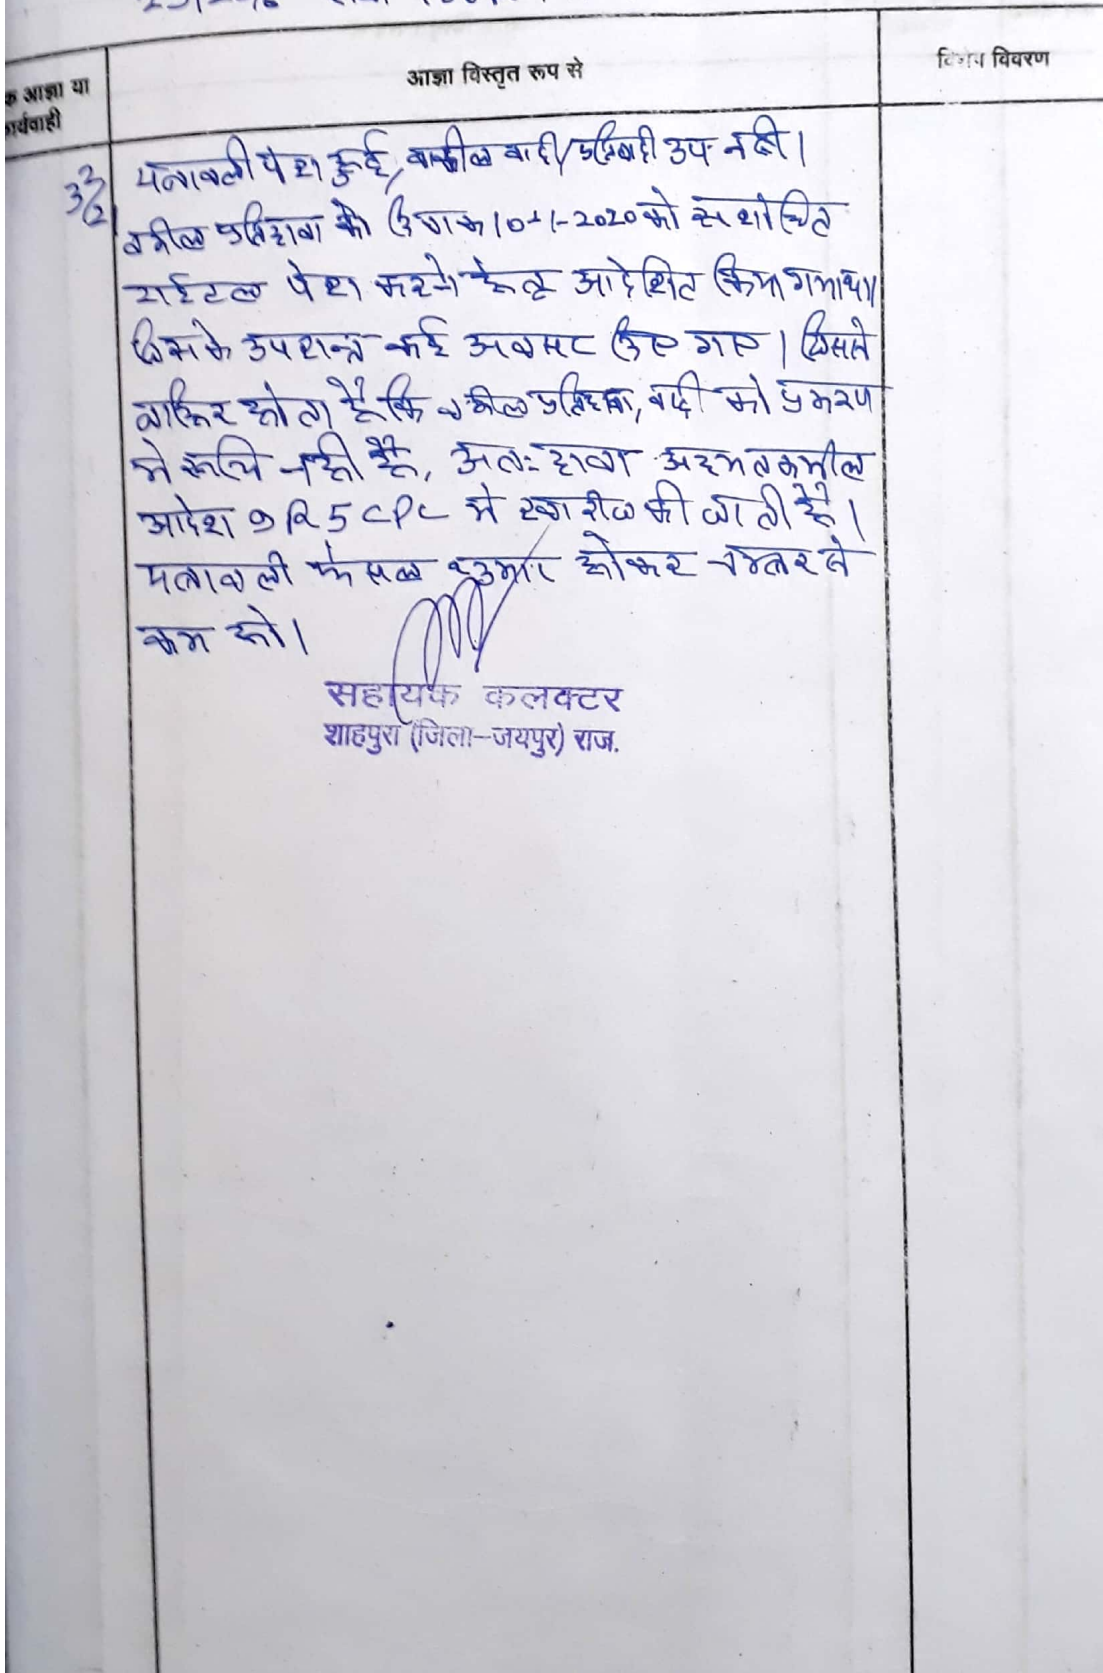 क आज्ञा या
ार्यवाही
आज्ञा विस्तृत रूप से
विशेष विवरण
पत्रावली पेश हुई, वकील वादी/प्रतिवादी उप नही।
वकील प्रतिवादी को दिनांक 10-1-2020 को संशोधित
टाईटल पेश करने हेतू आदेशित किया गया था।
जिसके उपरान्त कई अवसर दिए गए। जिससे
जाहिर होता है कि वकील, वादी को प्रकरण
मे रूचि नही है, अतः दावा अदमतकमील
आदेश 9 R 5 CPC मे खारीज की जाती है।
पत्रावली फेसल शुमार होकर नम्बर से
कम हो।
सहायक कलक्टर
शाहपुरा (जिला-जयपुर) राज.